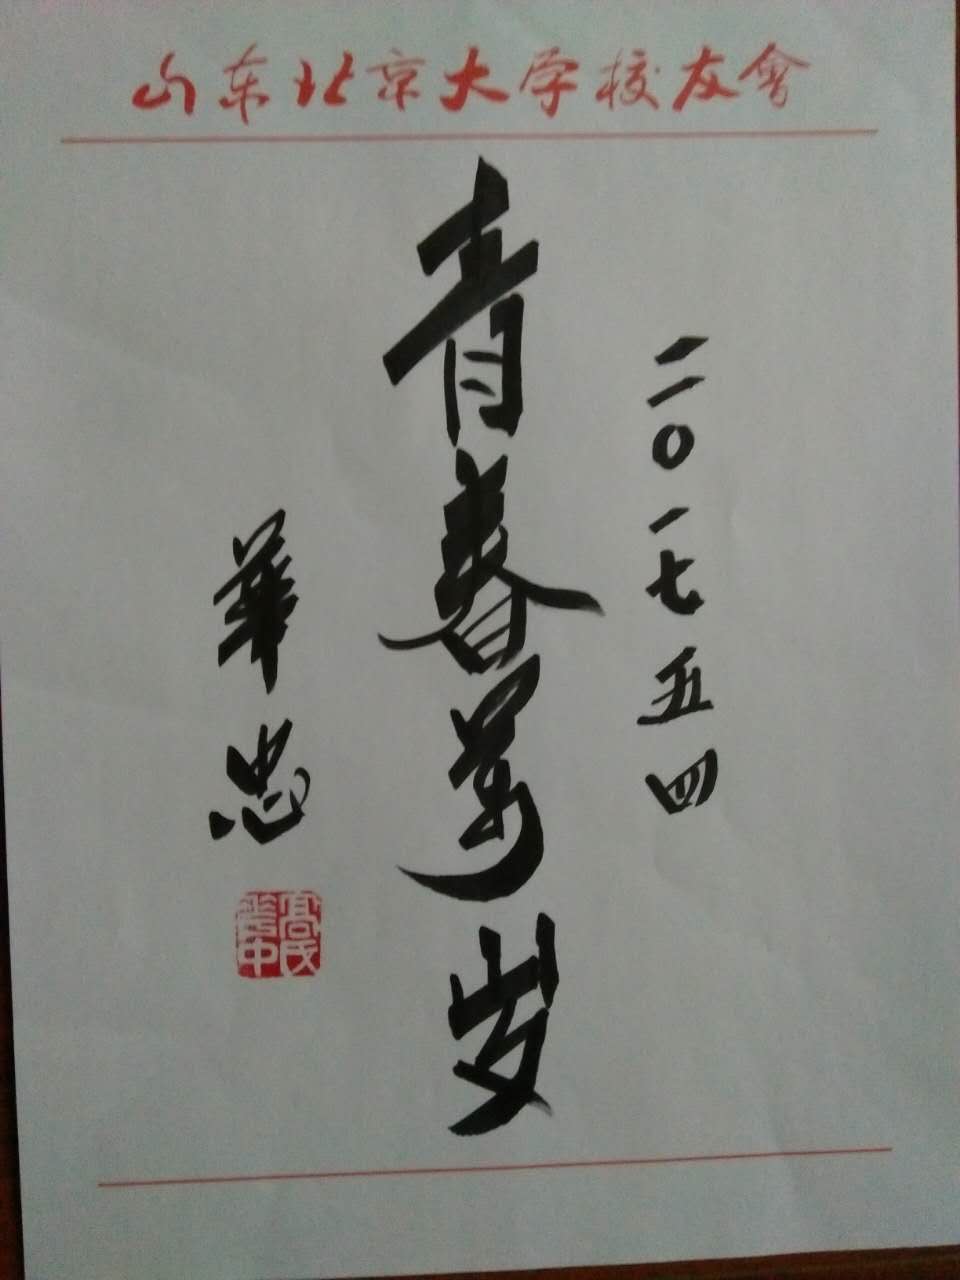 山东北京大学校友會
二〇一七五四
青春萬岁
華忠
高氏